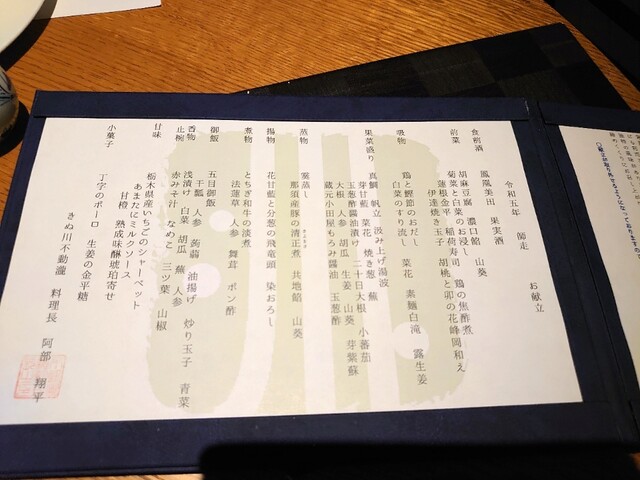 令和五年　師走　お献立
食前酒　鳳凰美田　果実酒
前菜　胡麻豆腐　濃口餡　山葵
菊菜と白菜のお浸し　鶏の焦酢煮
蓮根金平　稲荷寿司　胡桃と卯の花
伊達焼き玉子
吸物　鶏と鰹節のおだし　菜花　素麺白滝　露生姜
白菜のすり流し
果菜盛り　真鯛　帆立　汲み上げ湯波
芽甘藍　菜花　焼き葱　蕪
玉葱酢醤油漬け　二十日大根　小蕃茄
大根　人参　胡瓜　生姜　山葵　芽紫蘇
蔵元小田屋もろみ醤油　玉葱酢
蒸物　蕪蒸し
那須産豚の清正煮　共地餡　山葵
揚物　花甘藍と分葱の飛竜頭　染おろし
煮物　とちぎ和牛の淡煮
法蓮草　人参　舞茸　ポン酢
御飯　五目御飯
干瓢　人参　蒟蒻　油揚げ　炒り玉子　青菜
香物　浅漬け　白菜　胡瓜　蕪　人参
止椀　赤みそ汁　なめこ　三ツ葉　山椒
甘味　栃木県産いちごのシャーベット
あまたにミルクソース
甘橙　熟成味醂琥珀寄せ
小菓子　丁字のボーロ　生姜の金平糖
きぬ川不動瀧　料理長　阿部　翔平